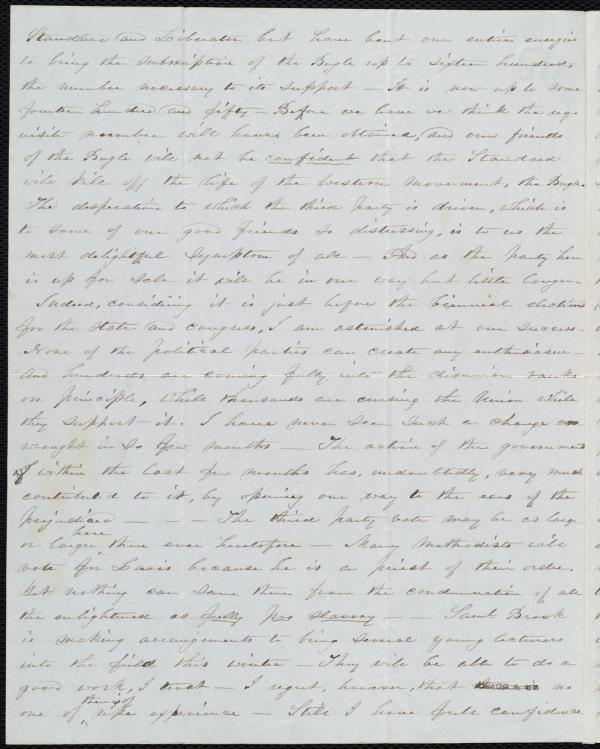 Standard and Liberator but have bent our entire energies
to bring the subscription of the Bugle up to sixteen hundred,
the number necessary to its support — It is now up to some
fourteen hundred and fifty — Before we leave we think the req-
uisite number will have been obtained, and our friends
of the Bugle will not be confident that the Standard
will kill off the life of the western movement, the Bugle.
The desperation to which the third party is driven, which is
to some of our good friends so distressing, is to us the
most delightful symptom of all — And as the party here
is up for sale it will be in our way but little longer
Indeed, considering it is just before the biennial election
for the state and congress, I am astonished at our success —
None of the political parties can create any enthusiasm
and hundreds are coming fully into the disunion ranks
on principle, while thousands are cursing the Union while
they support it. I have never seen such a change
wrought in so few months — The action of the government
within the last few months has, undoubtedly, very much
contributed to it, by opening our way to the ears of the
prejudiced — — — The third party vote may be as large
or larger here than ever heretofore — Many Methodists will
vote for Lewis because he is a priest of their order.
Yet nothing can save them from the condemnation of all
the enlightened as fully pro slavery — — Saml. Brook
is making arrangements to bring several young lecturers
into the field this winter — They will be able to do a
good work, I trust — I regret, however, that no
one of them is of ripe experience — Still I have full confidence